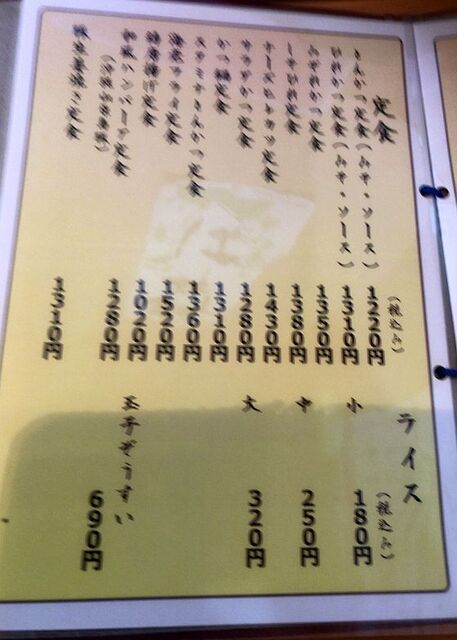 定食
(税込み)
とんかつ定食(みそ・ソース) 1220円
ひれかつ定食(みそ・ソース) 1310円
みぞれかつ定食 1350円
しそひれ定食 1380円
チーズヒレカツ定食 1430円
サラダかつ定食 1280円
かつ鍋定食 1310円
スタミナとんかつ定食 1360円
海老フライ定食 1520円
鶏唐揚げ定食 1020円
和風ハンバーグ定食 1280円
豚生姜焼き定食 1310円
ライス
(税込み)
小 180円
中 250円
大 320円
玉子ぞうすい 690円